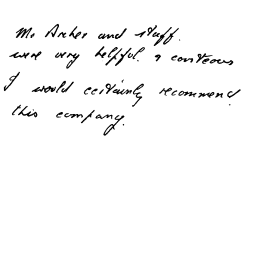 Mr Archer and staff.
were very helpful. & courteous
I would certainly recommend
this company.